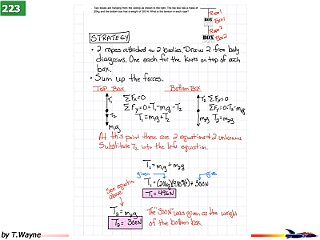 223
Two boxes are hanging from the ceiling as shown to the right. The top box has a mass of
20kg and the bottom box has a weight of 300 N. What is the tension in each rope?
Rope 1
BOX Box 1
Rope 2
BOX Box 2
STRATEGY
• 2 ropes attached to 2 bodies. Draw 2 free body
diagrams. One each for the knots on top of each
box.
• Sum up the forces.
Top Box
Bottom Box
T₁
ΣFx=0
ΣFy=0=T₁-m₁g-T₂
T₁=m₁g+T₂
T₂
m₁g
T₂
ΣFx=0
ΣFy=0=T₂-m₂g
T₂=m₂g
m₂g
At this point there are 2 equations & 2 unknowns
Substitute T₂ into the 1st equation.
T₁=m₁g+m₂g
given
given
T₁=(20kg)(9.80)+300N
T₁=496N
See equation
above
T₂=m₂g
T₂=300N
The 300N was given as the weight
of the bottom box
by T.Wayne